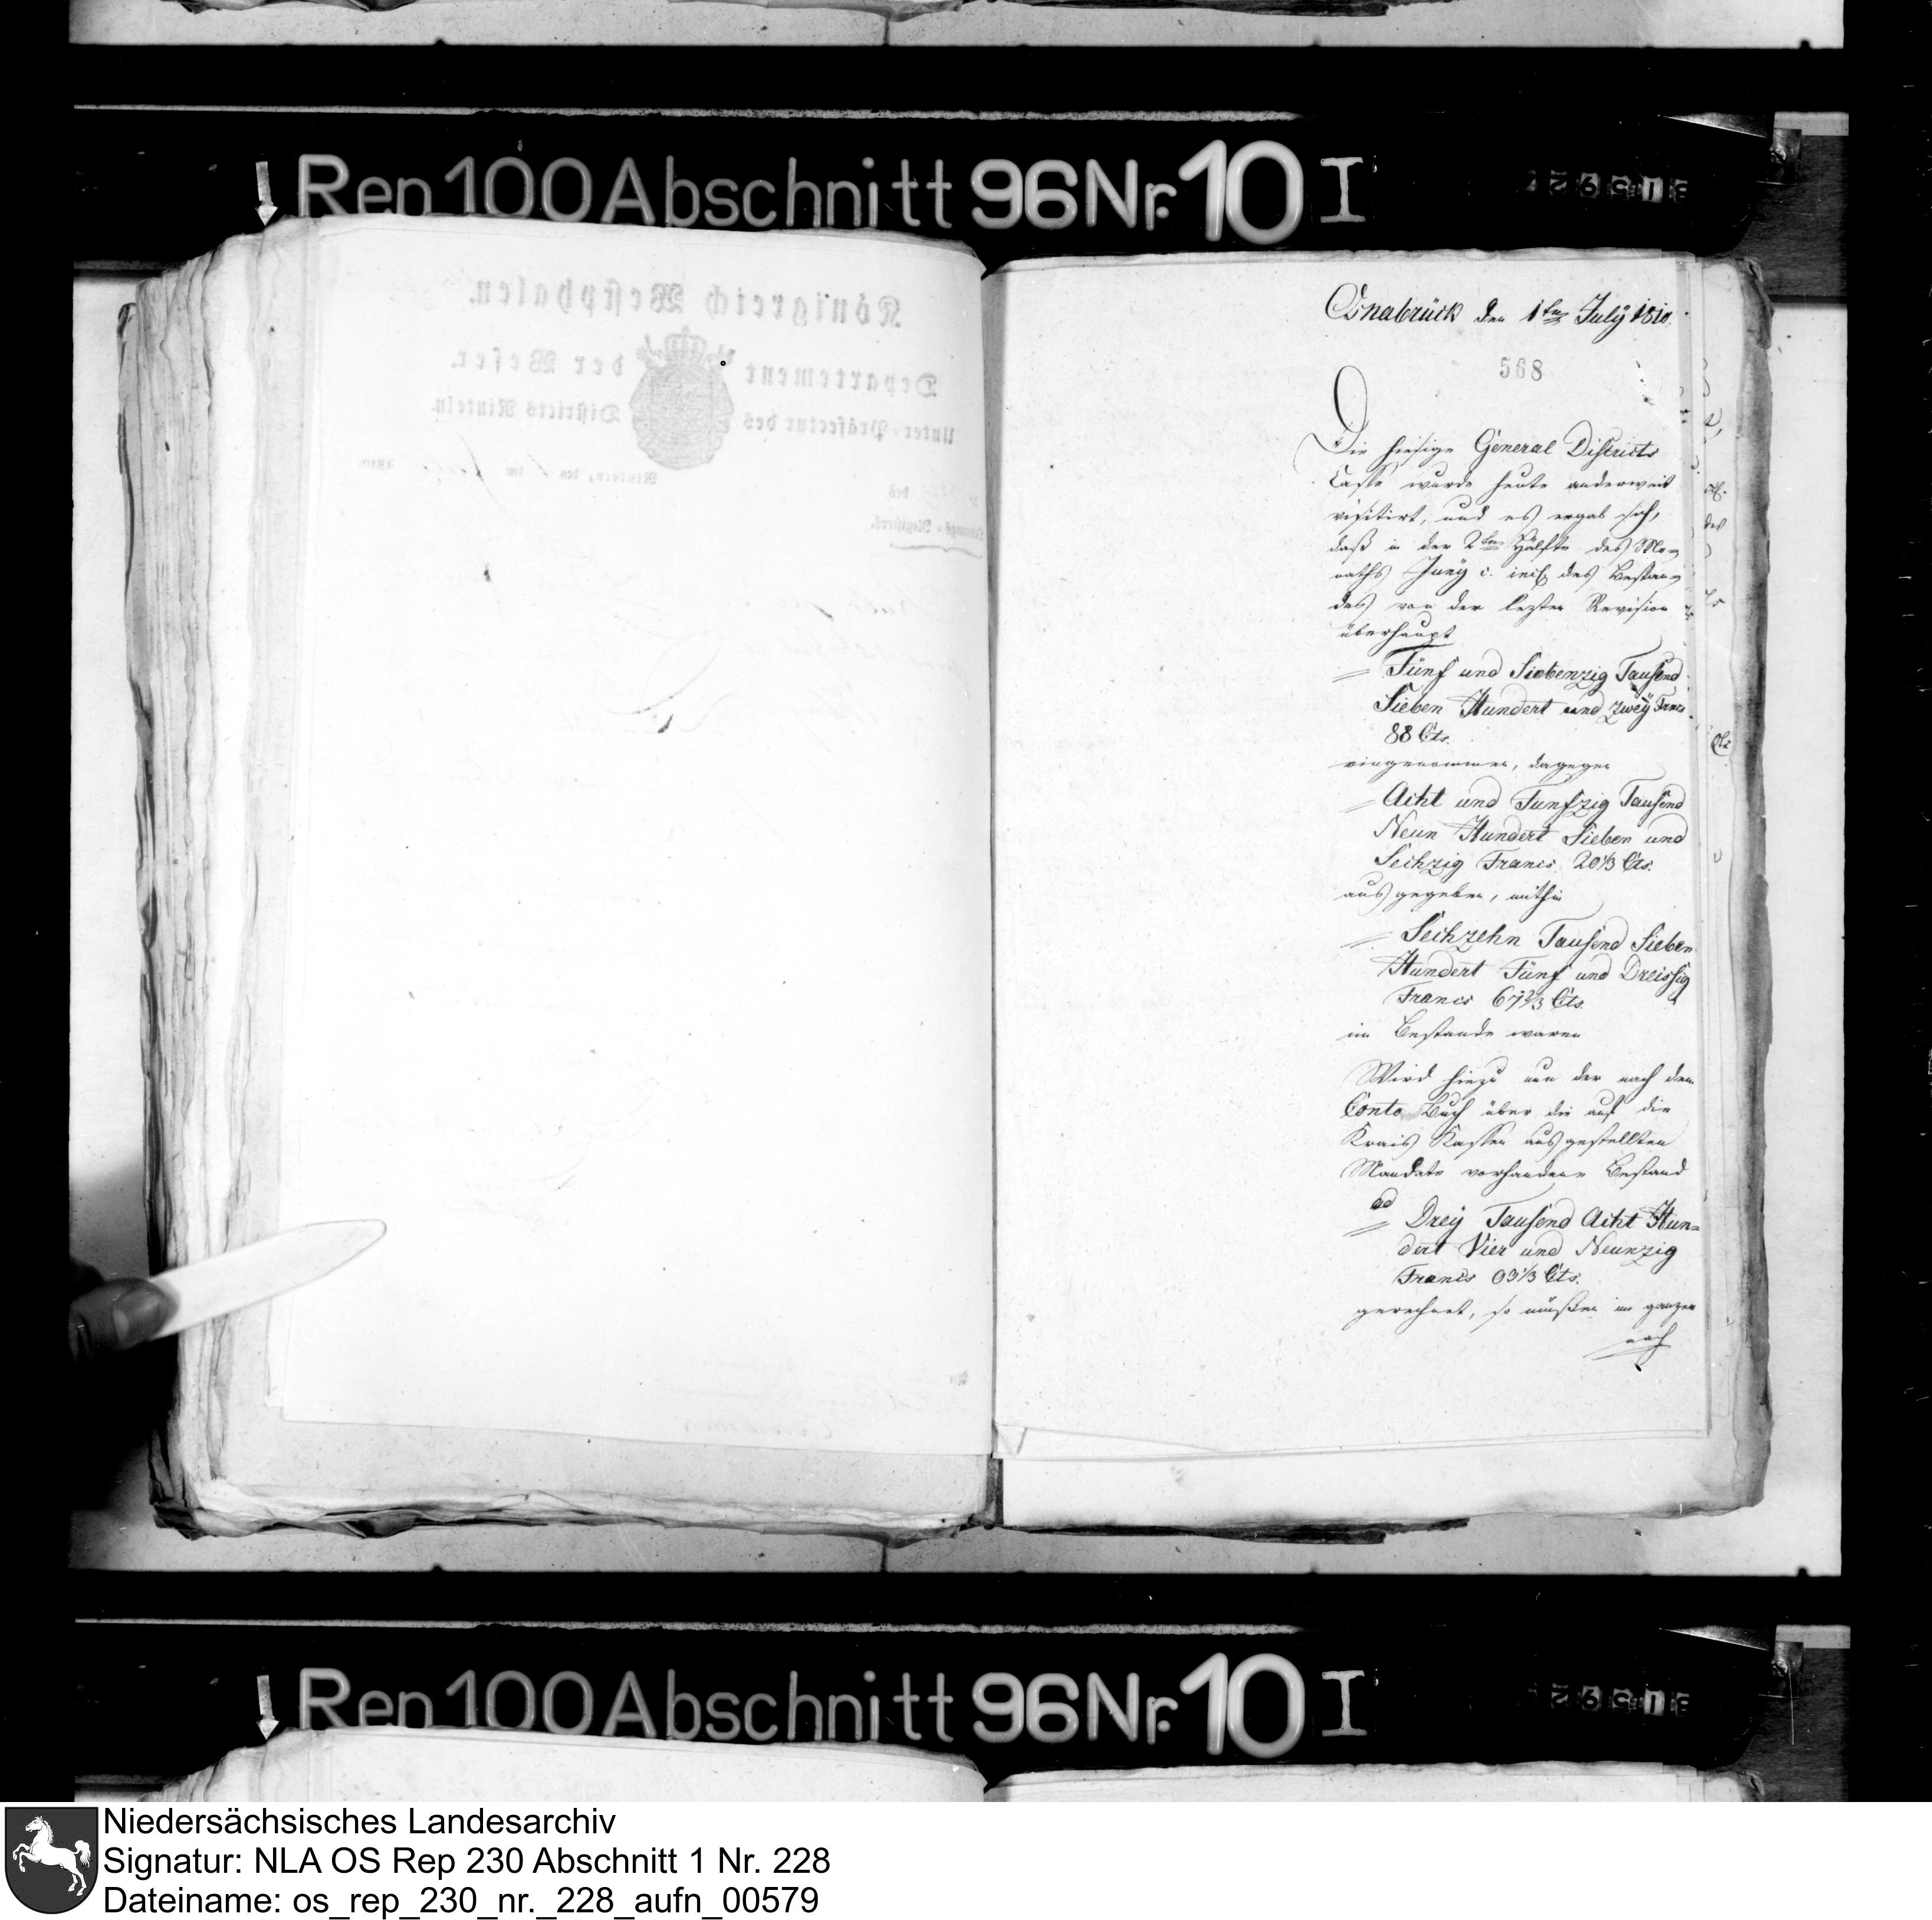 Rep 100 Abschnitt 96 Nr. 10 I
Königreich Westphalen.
Departement der Weser.
Unter-Präfectur des Districts Rinteln.
Rinteln, den
des
Registers.
Osnabrück den 1ten July 1810.
568
Die hiesige General Districts
Casse wurde heute anderweit
visitirt, und es ergab sich,
daß in der 2ten Hälfte des Mo-
naths Juny c. incl. des Bestan-
des von der lezten Revision
überhaupt
Fünf und Siebenzig Tausend
Sieben Hundert und zwey Francs
88 Cts.
eingenommen, dagegen
Acht und Funfzig Tausend
Neun Hundert Sieben und
Sechzig Francs. 20 1/3 Cts.
ausgegeben, mithin
Sechzehn Tausend Sieben
Hundert Fünf und Dreissig
Francs 67 2/3 Cts.
im Bestande waren
Wird hiezu nun der nach dem
Conto Buch über die auf die
Krais Kassen ausgestellten
Mandate vorhandene Bestand
ad Drey Tausend Acht Hun=
dert Vier und Neunzig
Francs 03 1/3 Cts.
gerechnet, so müßen im ganzen
noch
Rep 100 Abschnitt 96 Nr. 10 I
Niedersächsisches Landesarchiv
Signatur: NLA OS Rep 230 Abschnitt 1 Nr. 228
Dateiname: os_rep_230_nr._228_aufn_00579